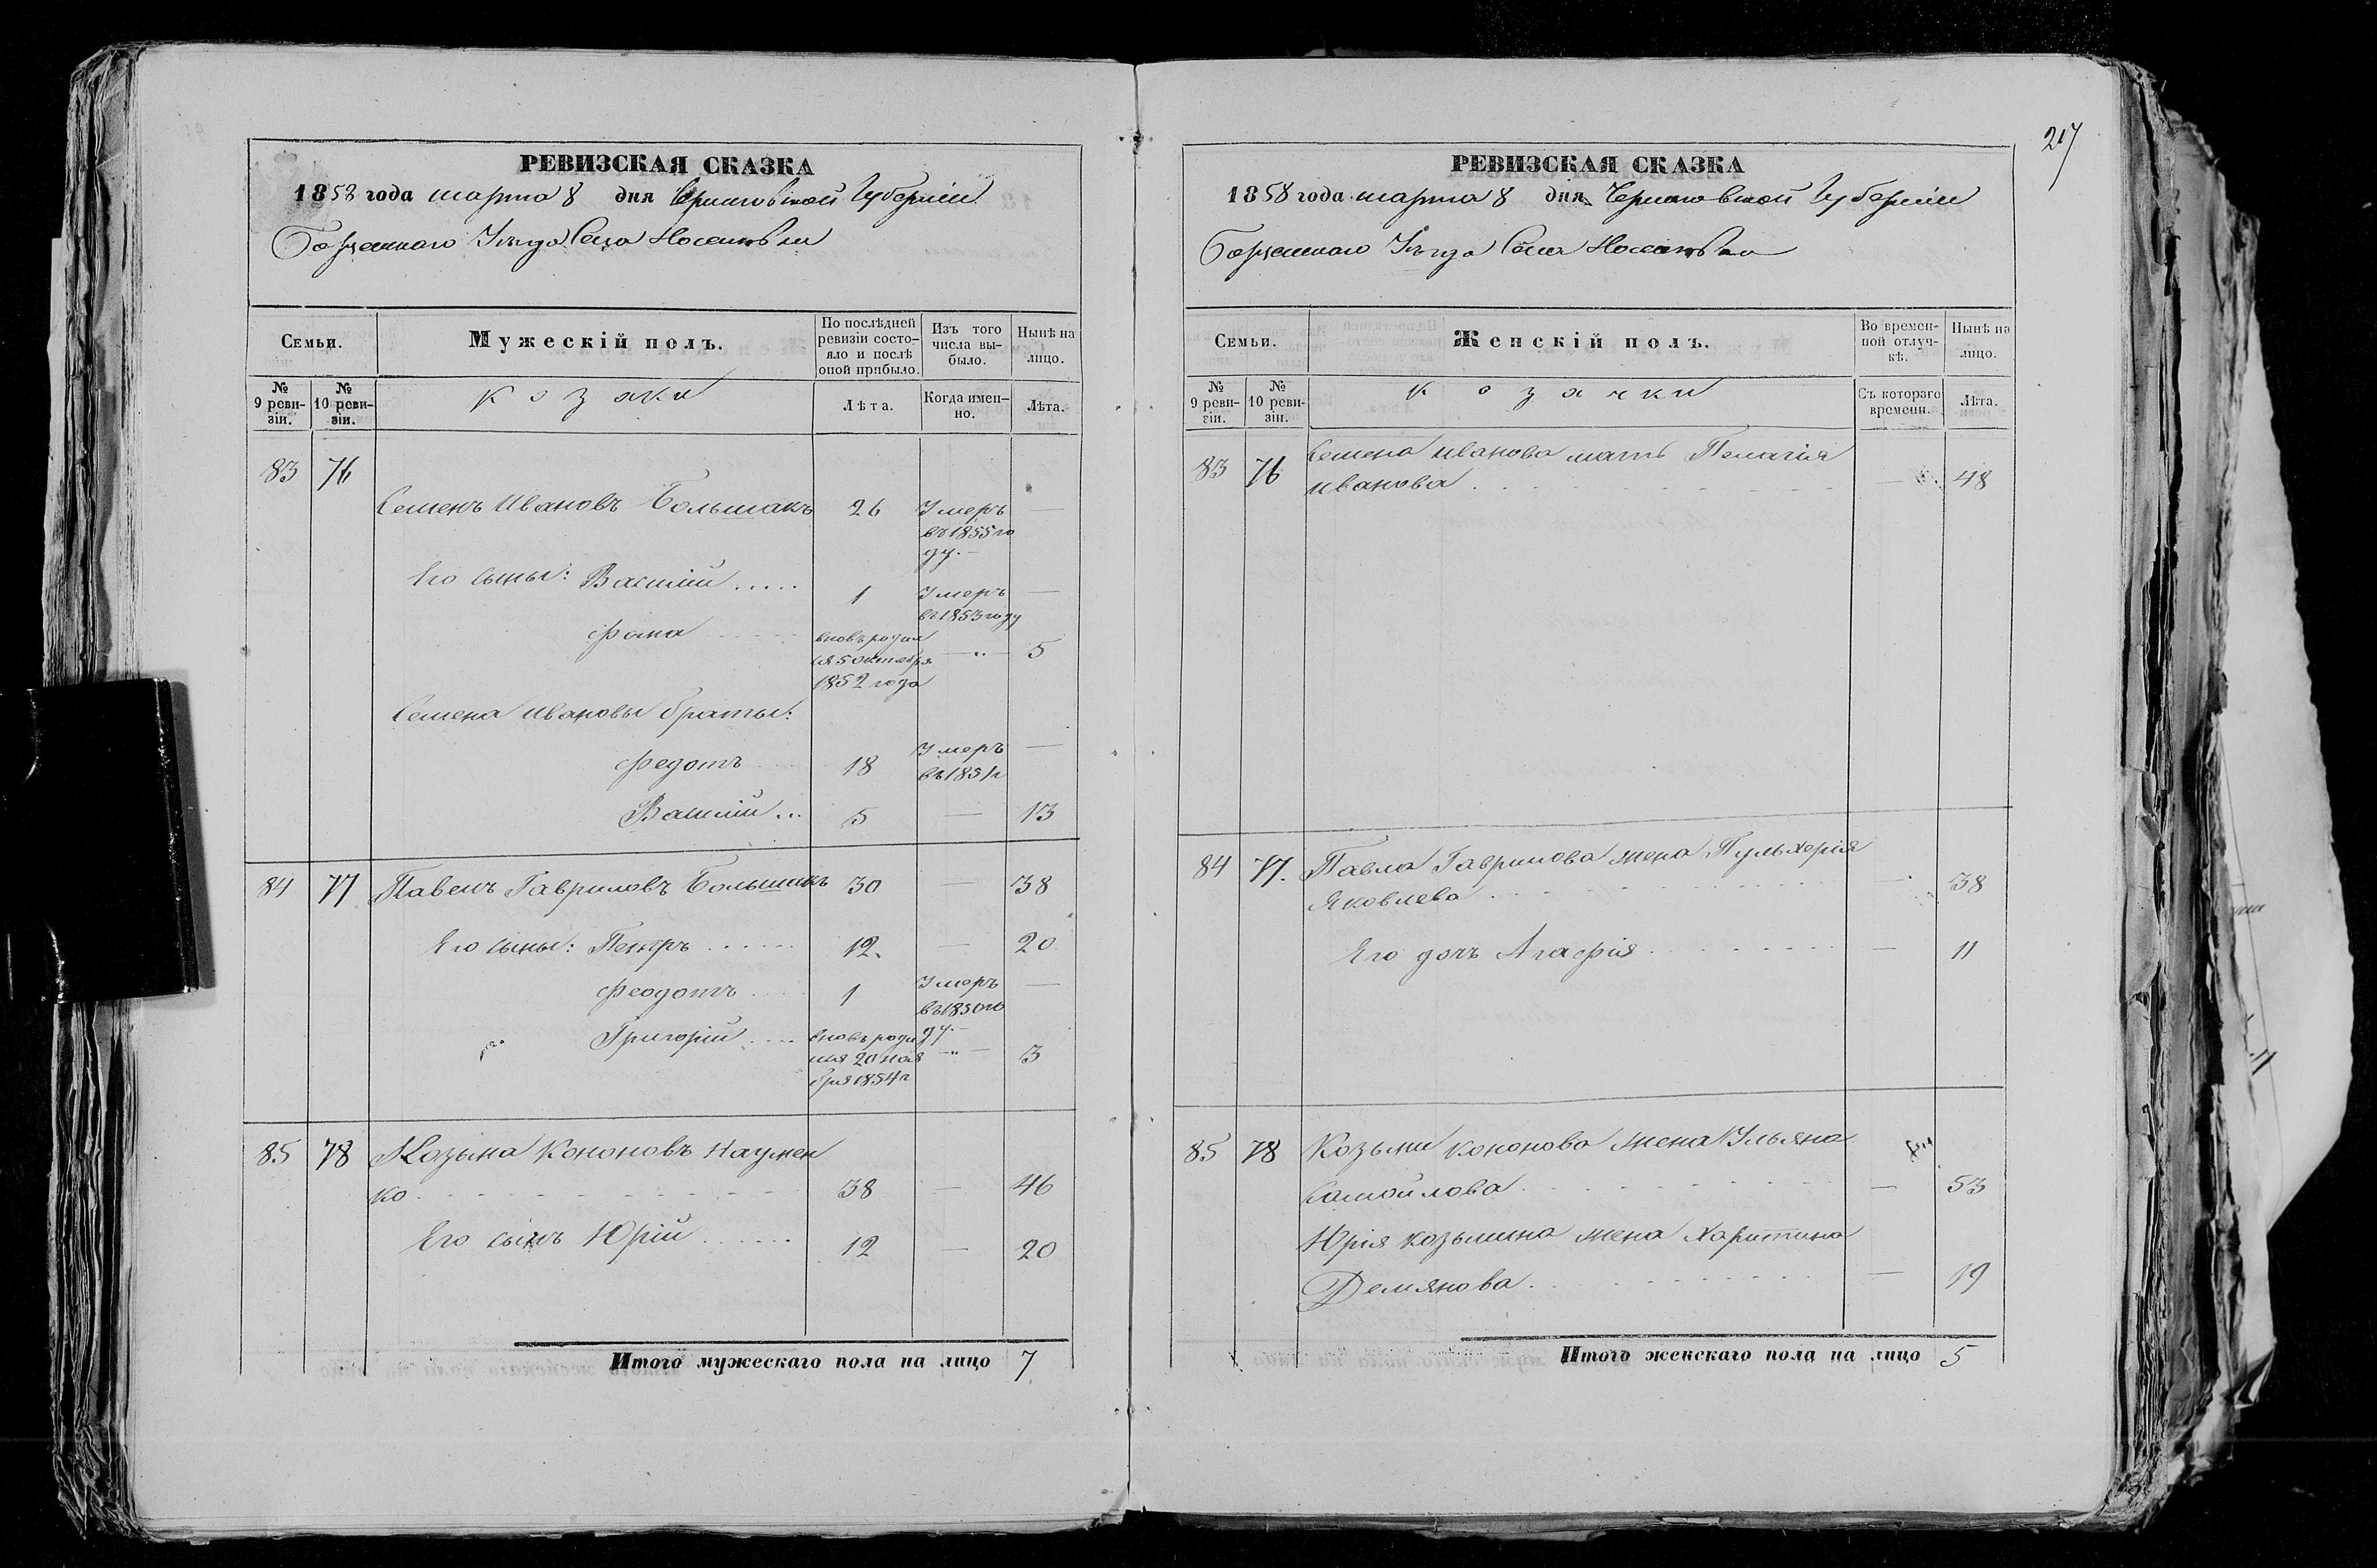 РЕВИЗСКАЯ СКАЗКА
1858 года марта 8 дня Черниговской Губернии
Борзенского Уезда Села Носелевки
Семьи.
Мужескій полъ.
По послѣдней
ревизіи состо-
яло и послѣ
оной прибыло.
Изъ того
числа вы-
было.
Нынѣ на
лицо.
№
9 реви-
зіи.
№
10 реви-
зіи.
козаки
Лѣта.
Когда имен-
но.
Лѣта.
83 76
Семенъ Ивановъ Большакъ 26 Умеръ —
въ 1855 го
ду. —
Его сыны: Василій ..... 1 Умеръ —
въ 1853 году
Фома вновь родил
ся 5 октября — " — 5
1852 года
Семена Ивановы браты:
Федотъ 18 Умеръ —
въ 1851 г
Василій ... 5 — 13
84 77 Павелъ Гавриловъ Большакъ 30 — 38
Его сыны: Петръ ...... 12. — 20
Феодотъ .... 1 Умеръ —
въ 1850 го
ду. —
Григорій .... вновь роди
лся 20 ноя — " — 3
бря 1854 г
85 78 Козьма Кононовъ Наумен
ко 38 — 46
Его сынъ Юрій ...... 12 — 20
Итого мужескаго пола на лицо 7
27
РЕВИЗСКАЯ СКАЗКА
1858 года марта 8 дня Черниговской Губерніи
Борзенского Уезда Села
Семьи.
Женскій полъ.
Во времен-
ной отлуч-
кѣ.
Нынѣ на
лицо.
№
9 реви-
зіи.
№
10 реви-
зіи.
козачки
Съ котораго
времени.
Лѣта.
83 76 Семена Иванова мать Пелагия
Иванова — 48
84 77. Павла Гаврилова жена Пульхерія
Яковлева — 38
Его дочь Агафія — 11
85 78 Козьми Кононова жена Ульяна
Самойлова — 53
Юрія Козьмина жена Харитина
Демянова — 19
Итого женскаго пола на лицо 5